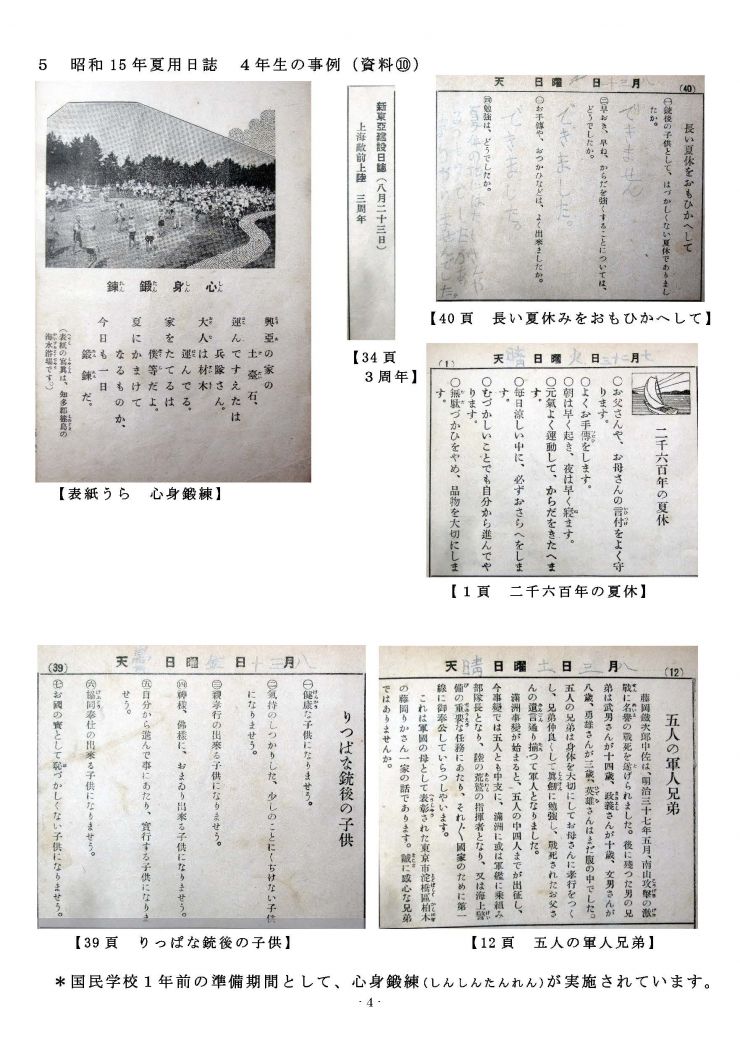 ５　昭和15年夏用日誌　４年生の事例（資料⑩）
心身鍛錬
しんしんたんれん
興亜の家の
土臺石、
運んですえたは
兵隊さん。
大人は材木
運んでる。
家をたてるは
僕等だよ。
夏にかまけて
なるものか、
今日も一日
鍛錬だ。
（表紙の寫眞は、知多郡篠島の
海水浴場です）
【表紙うら　心身鍛練】
新東亞建設日誌（八月二十三日）
上海敵前上陸　三周年
【34頁
３周年】
月　日　曜日　天
(40)
長い夏休をおもひかへして
㊀銃後の子供として、はづかしくない夏休でありまし
たか。
㊁早おき、早ね、からだを強くすることについては、
どうでしたか。
できました。
㊂お手傳や、おつかひなどは、よく出來ましたか。
できました。
㊃勉強は、どうでしたか。
【40頁　長い夏休みをおもひかへして】
七月二十三日火曜日天晴
(1)
二千六百年の夏休
〇お父さんや、お母さんの言付をよく守
ります。
〇よくお手傳をします。
〇朝は早く起き、夜は早く寢ます。
〇元氣よく運動して、からだをきたへま
す。
〇毎日涼しい中に、必ずおさらへをしま
す。
〇むづかしいことでも自分から進んでや
ります。
〇無駄づかひをやめ、品物を大切にしま
す。
【１頁　二千六百年の夏休】
八月三十日金曜日天曇
(39)
りつぱな銃後の子供
㊀健康な子供になりませう。
㊁氣持のしつかりした、少しのことにくぢけない子供
になりませう。
㊂親孝行の出來る子供になりませう。
㊃神様、佛様に、おまゐり出來る子供になりませう。
㊄自分から進んで事にあたり、實行する子供になりま
せう。
㊅協同奉仕の出來る子供になりませう。
㊆お國の寶として恥づかしくない子供になりませう。
【39頁　りっぱな銃後の子供】
八月三日土曜日天晴
(12)
五人の軍人兄弟
藤岡鐵次郎中佐は、明治三十七年五月、南山攻撃の激
戰に名譽の戰死を遂げられました。後に殘つた男の兄
弟は武男さんが十四歳、政義さんが十歳、文男さんが
八歳、勇雄さんが三歳、英雄さんはまだ腹の中でした。
五人の兄弟は身体を大切にしてお母さんに孝行をつく
し、兄弟仲良くして眞劍に勉強し、戰死されたお父さ
んの遺言通り揃つて軍人となりました。
滿洲事變が始まると、五人の中四人までが出征し、
今事變では五人とも中支に、滿洲に或は軍艦に乘組み
部隊長となり、陸の荒鷲の指揮者となり、又は海上警
備の重要な任務にあたり、それ〴〵國家のために第一
線に御奉公していらつしやいます。
これは軍國の母として表彰された東京市淀橋區柏木
の藤岡りかさん一家の話であります。誠に感心な兄弟
ではありませんか。
【12頁　五人の軍人兄弟】
＊国民学校１年前の準備期間として、心身鍛練(しんしんたんれん)が実施されています。
- 4 -